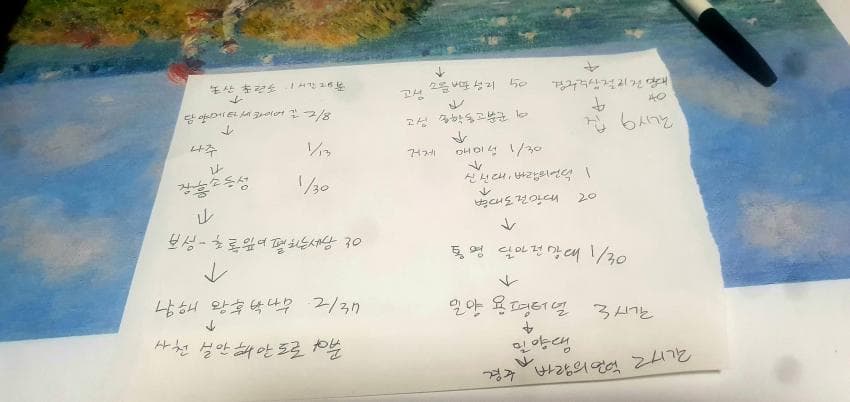 논산 훈련소 1시간 25분
↓
담양메타세콰이어 길 2/8
↓
나주 1/13
↓
장흥 소등섬 1/30
↓
보성 - 초록잎이 펼치는세상 30
↓
남해 왕후박나무 2/37
↓
사천 실안해안도로 40분
↓
고성 50
↓
고성 송학동고분군 10
↓
거제 매미성 1/30
↓
신선대, 바람의언덕 1
↓
병대도전망대 20
↓
통영 달아전망대 1/30
↓
밀양 용평터널 3시간
↓
밀양댐
↓
경주 바람의언덕 2시간
↓
경주주상절리전망대
40
↓
집 6시간